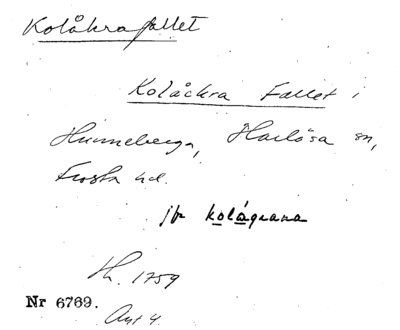 Kolåkrafallet
Kolåckra Fallet i
Hunneberga, Harlösa sn,
Frosta hd.
jfr kolágrana
Sk. 1759
Nr 6769.
Avt 4.